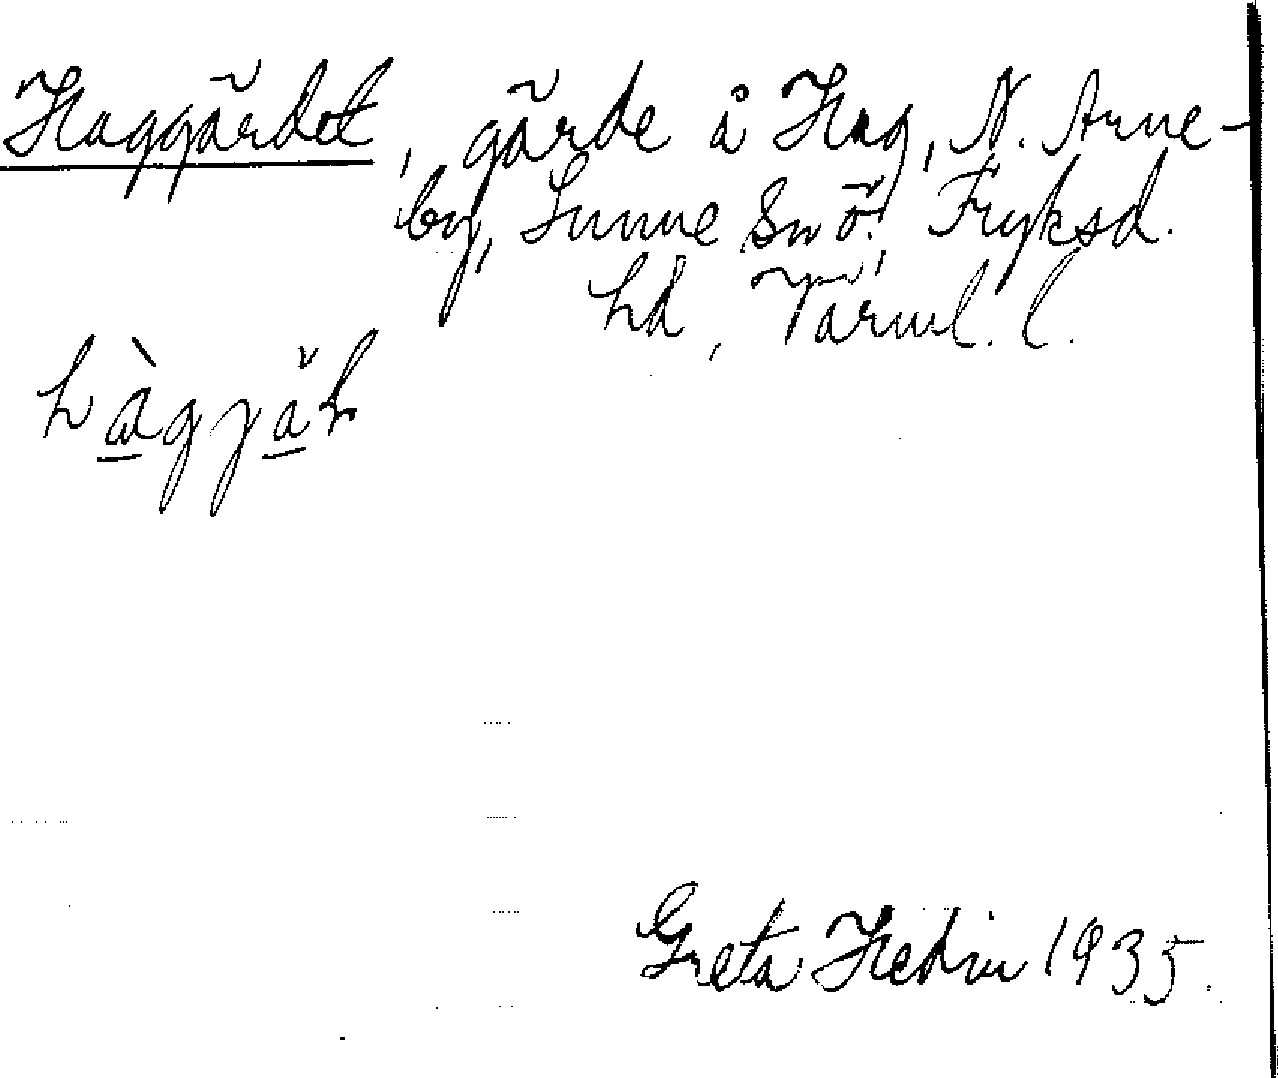 Haggärdet, gärde å Hag, N. Arne-
by, Sunne snö., Fryksd.
hd, Värml. l.
hàgjäɽ
Greta Hedin 1935.